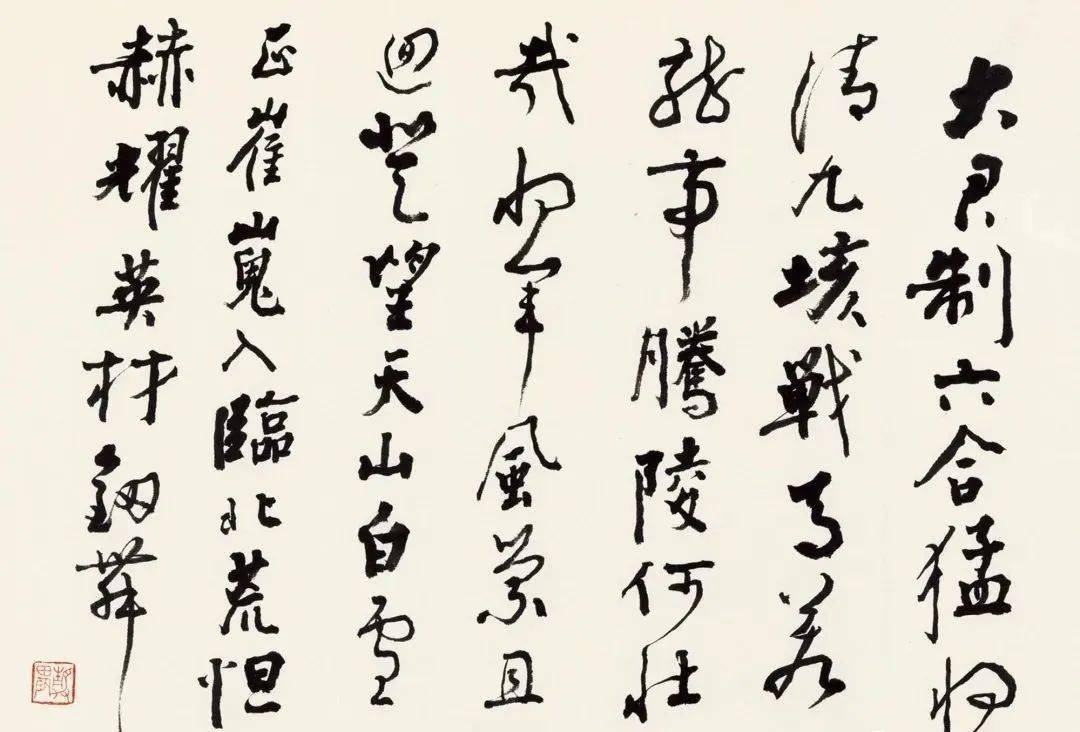 大君制六合猛將
清九垓戰馬若
龍虎騰陵何壯
哉將軍風縈且
迴登望天山白雲
正崔嵬入臨北荒怛
赫耀英材劍舞